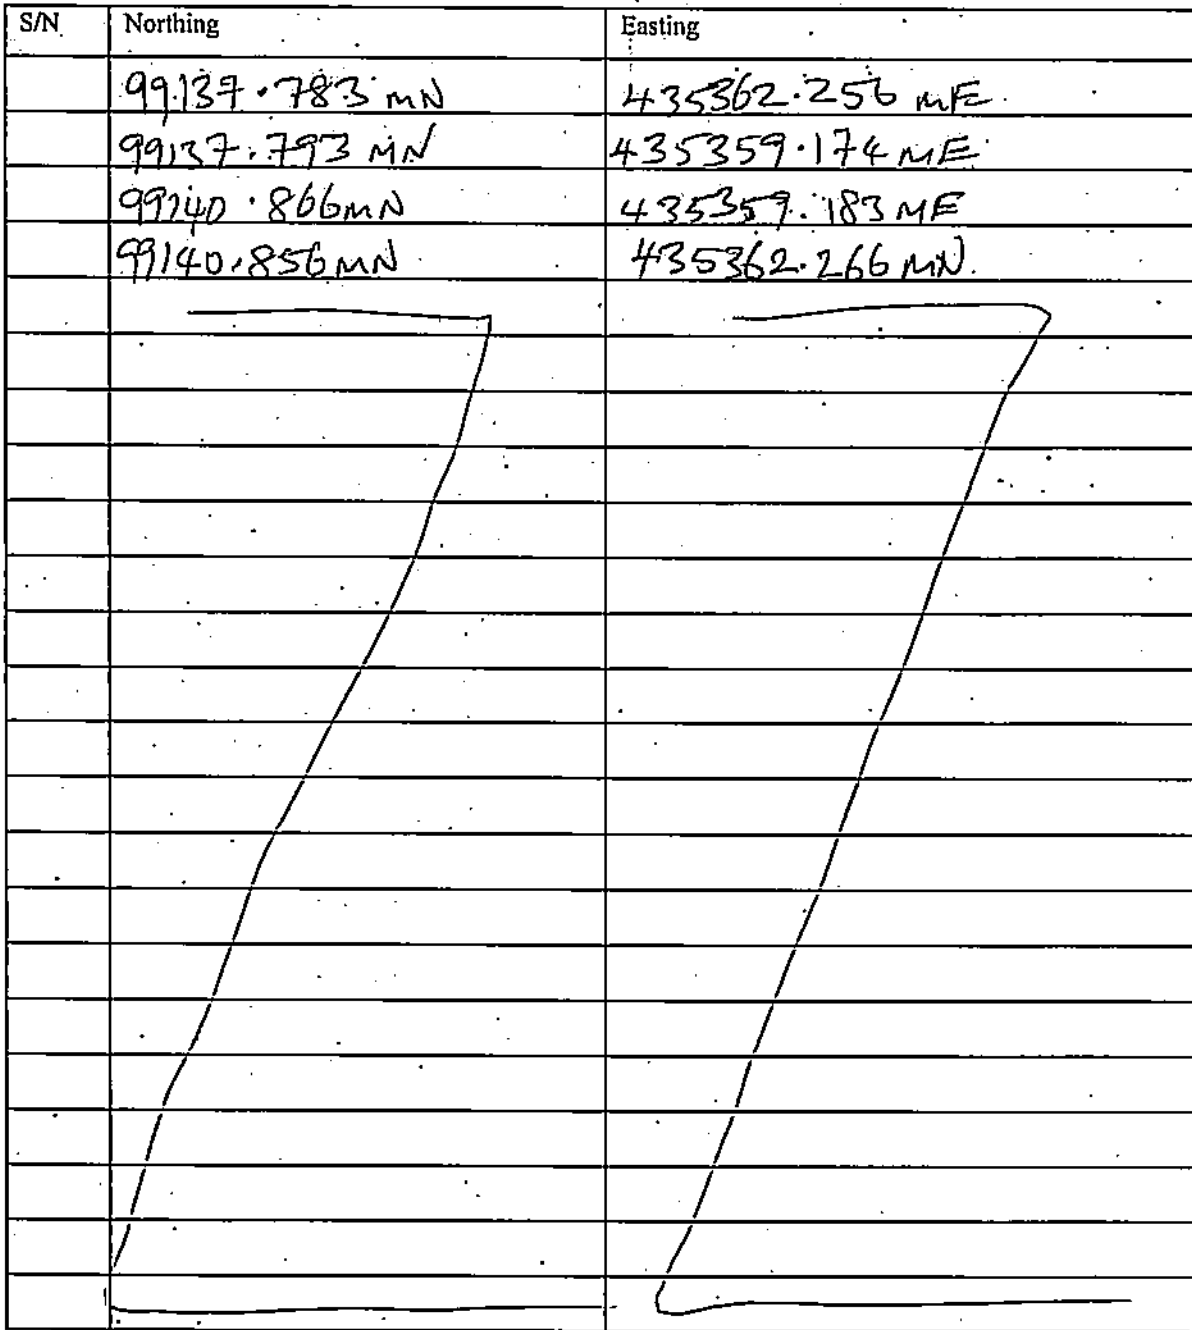 S/N Northing Easting
99137.783 mN 435362.256 mE
99137.793 mN 435359.174 mE
99140.866mN 435359.183 mE
99140.856mN 435362.266 mN.